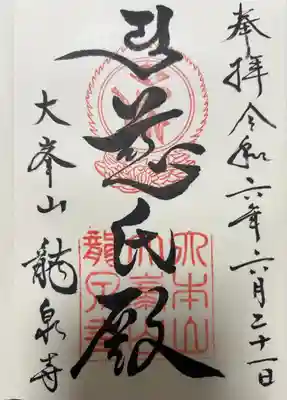 奉拝 令和六年六月二十一日
慈氏殿
大峯山 龍泉寺
大本山
龍泉寺